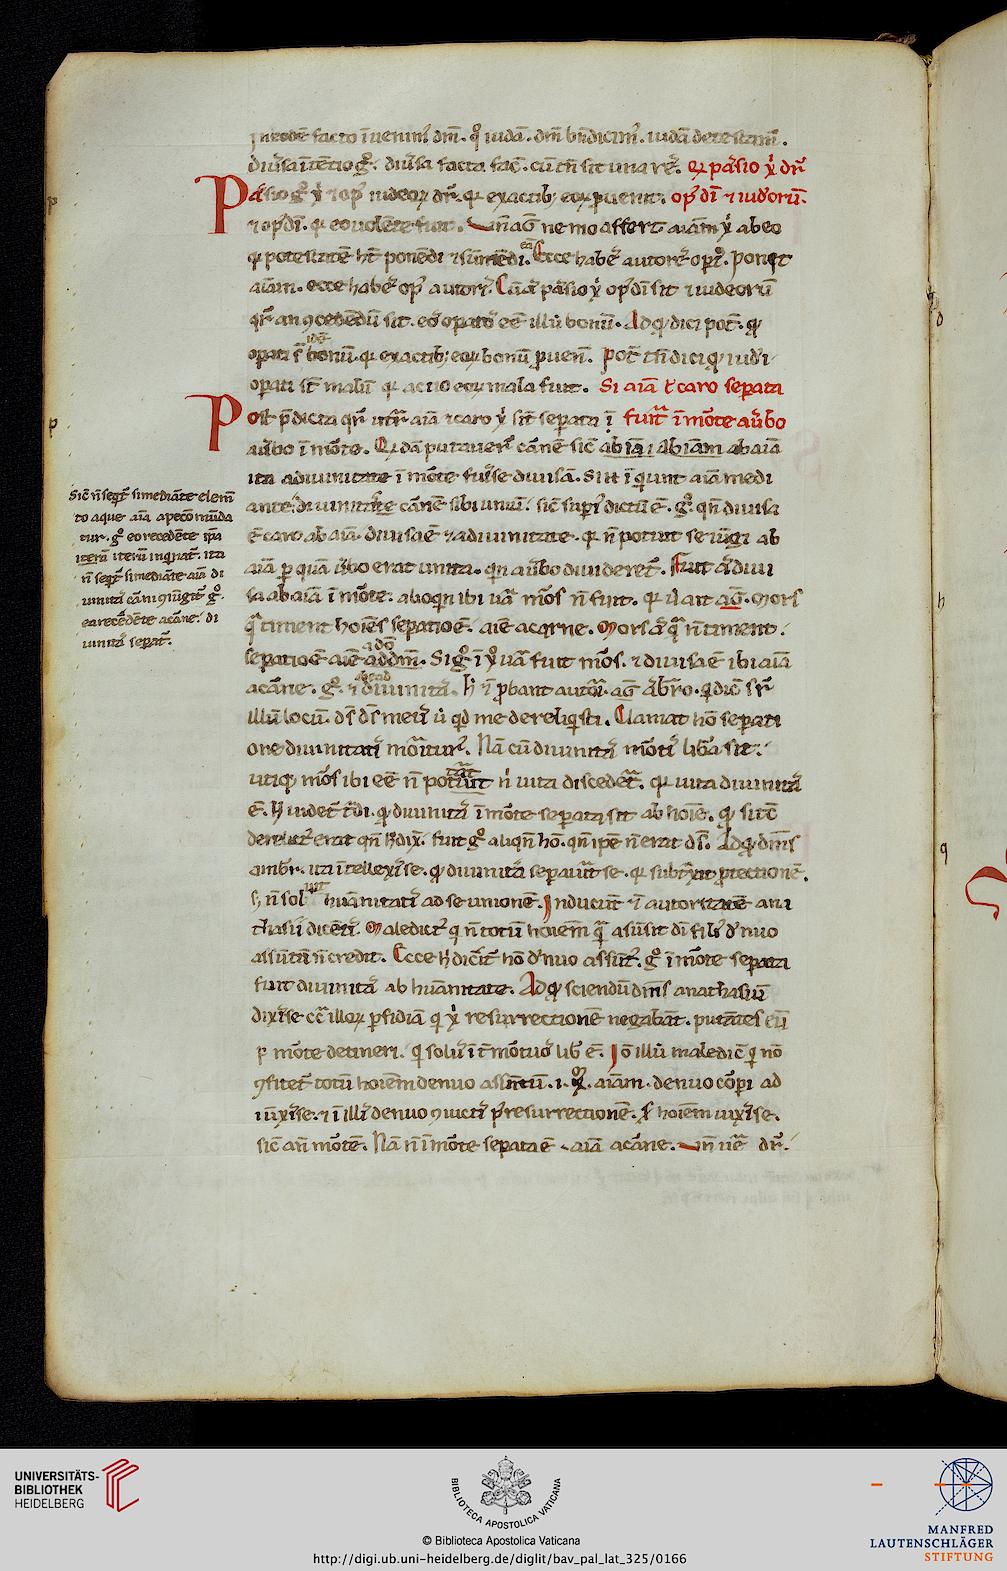 in eodē facto īuenim᷒ dm̄. q᷒ iudā. dm̄ bn̄dicim᷒. iudā detestam᷒.
diuͤsa ītētio gͦ. diuͤsa facta facͭ. cū tn̄ sit una rͤ. Q᷒ pasio x̄ dr̄
Pasio gͦ x̄ ⁊ op᷒ iudeoꝝ dr̄. qꝛ ex actibꝫ eoꝝ ꝓuenit. op᷒ dī ⁊ iudeorū.
⁊ op᷒ dī. qꝛ eo uolēte fuit. un̄ aḡ nemo affert aīam x̄ ab eo
qꝛ potestatē ht̄ ponēdi ⁊ sumēdi. Ecce habēt autorē opīs. ponit
aīam. ecce habēt op᷒ autorīs. Cū gͦ pasio x̄ op᷒ dī sit ⁊ iudeorū
qr̄ an ꝯcedēdū sit. eos opatos eē illū bonū. Ad qd̄ dici pot̄. qd̄
opati st̄ bonū. qꝛ ex actibꝫ eoꝝ bonū ꝓuen̄. pot̄ tn̄ dici qd̄ iudī
opati st̄ malū qꝛ actio eoꝝ mala fuit. Si aīa ⁊ caro separata
Post p̄dicta qr̄ utrū aīa ⁊ caro x̄ sit separata ī fuit ī morte a ūbo
a ūbo ī morte. Quidā putauerͭ carnē sic ab aīa
ita a diuinitate ī morte fuisse diuisā. Si ū īquiunt aīam medi
ante diuinitate carnē sibi uniuit sic supͥ dictū ē. gͦ. qn̄ diuisa
ē caro ab aīa. diuisa ē ⁊ a diuinitate. qꝛ n̄ potuit seiūgi ab
aīa p quā ūbo erat unita. quin a ūbo diuideret᷒. Fuit aū diui
sa ab aīa ī morte. alioquin ibi uā mors n̄ fuit. qꝛ ū ait aḡ. Mors
quā timent hoīes separatio ē. aīe a carne. Mors aū quā n̄ timent
separatio ē aīe a do. Si gͦ ī x̄ uā fuit mors. ⁊ diuisa ē ibi aīa
a carne. gͦ. ⁊ diuinitas. Hͦ ⁊ ꝓbant autoritate Ambro. qui dicͭ sr̄
illū locū. ds̄ ds̄ meus ut qd̄ me dereliquisti. Clamat hō separati
one diuinitatis moriturus. Nā cū diuinitas mortis libera sit
utiqꝫ mors ibi eē n̄ poterat n̄ uita discederet. qꝛ uita diuinitas
ē. Hͦ uidet᷒ tͣdi. qd̄ diuinitas ī morte separata sit ab hoīe.
derelict᷒ erat qn̄ hͦ dix̄. fuit gͦ aliqn̄ hō. qn̄ ipē n̄ erat ds̄. Ad qd̄ dicimus
ambr̄. ita ītellexisse. qd̄ diuinitas separauit se. qꝛ subtraxit ꝓtectionē.
sꝫ n̄ soluit huānitatis ad se unionē. Inducūt ⁊ autoritatē ana
thasii dicētis. Maledict᷒ qui n̄ totū hoīem quē asūsit dī fili᷒ denuo
assūtū n̄ credit. Ecce hͦ dicit hō denuo assūt᷒. gͦ ī morte separata
fuit diuinitas ab huānitate. Ad qd̄ sciendū dicimus anathasiū
dixisse ctͣ illoꝝ perfidiā qui x̄ resurrectionē negabāt. putātes eū
ī morte detineri. qui solus īt᷒ mortuos lib᷒ ē. Iō illū maledicͭ qui nō
ꝯfitet᷒ totū hoīem denuo assūtū. .i. qd̄. aīam. denuo corpori ad
iūxisse. ⁊ ī illis denuo ꝯiūctis p resurrectionē. s̄ hoīem uixisse.
sic añ mortē. Nā n̄ ī morte separata ē aīa a carne. un̄ uē dr̄.
Sic n̄ seqt᷒ si mediāte elem̄
to aque aīa a peccō mūda
tur. gͦ eo recedēte ip̄a
iterū inquinat᷒. ita
n̄ seqt᷒ si mediāte aīa di
uinitas carni ꝯiūgit᷒ gͦ.
ea recedēte a carne. di
uinitas separat᷒.
p
p
UNIVERSITÄTS-
BIBLIOTHEK
HEIDELBERG
BIBLIOTECA APOSTOLICA VATICANA
© Biblioteca Apostolica Vaticana
http://digi.ub.uni-heidelberg.de/diglit/bav_pal_lat_325/0166
MANFRED
LAUTENSCHLÄGER
STIFTUNG